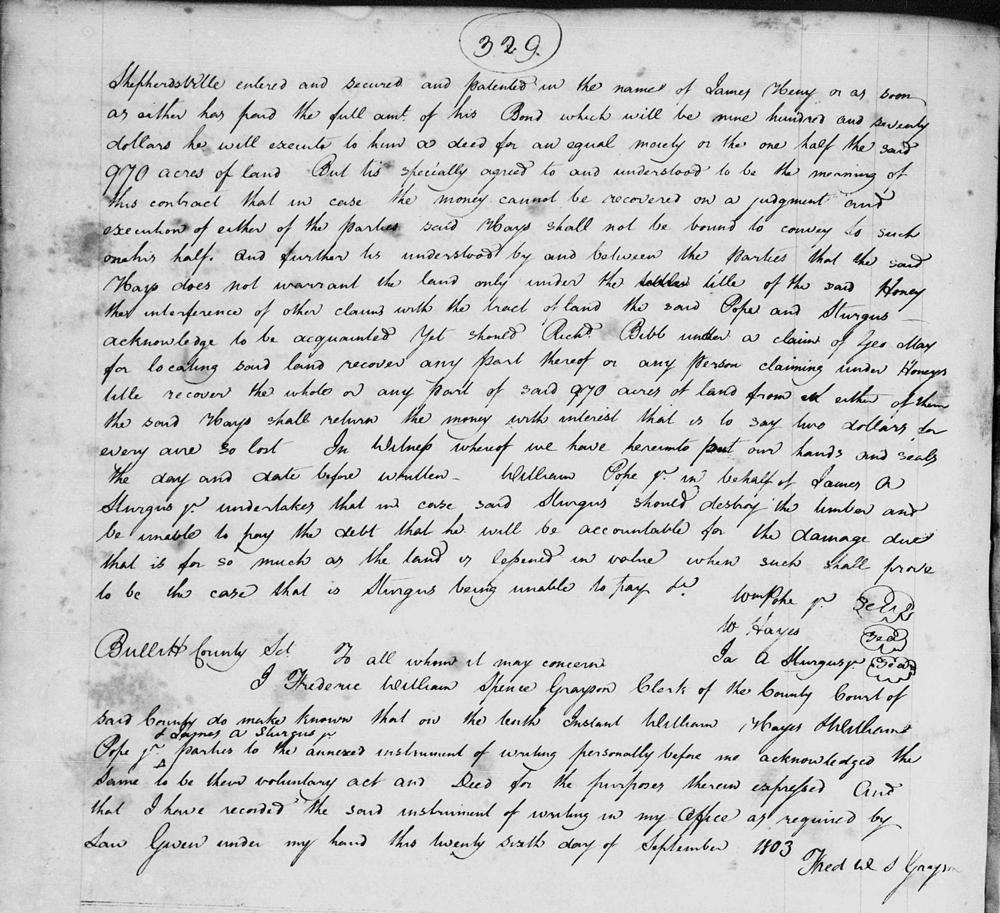 329.
Shepherdsville entered and secured and patented in the name of James Heny or as soon
as either has paid the full amt. of his Bond which will be nine hundred and seventy
dollars he will execute to him a deed for an equal moiety or the one half the said
970 acres of land But tis specially agreed to and understood to be the meaning of
this contract that in case the money cannot be recovered on a judgment and
execution of either of the Parties said Hays shall not be bound to convey to such
one his half. And further tis understood by and between the Parties that the said
Hays does not warrant the land only under the title of the said Honey
the interference of other claims with the tract of land the said Pope and Sturgus
acknowledge to be acquainted Yet should Richd. Bibb under a claim of Geo May
for locating said land recover any part thereof or any Person claiming under Honeys
title recover the whole or any Part of said 970 acres of land from either of them
the said Hays shall return the money with interest that is to say two dollars for
every acre so lost In Witness whereof we have hereunto put our hands and seals
the day and date before written - William Pope jr. in behalf of James A
Sturgus jr. undertakes that in case said Sturgus should destroy the timber and
be unable to pay the debt that he will be accountable for the damage due
that is for so much as the land is lessened in value when such shall prove
to be the case that is Sturgus being unable to pay &c.
Wm Pope jr. Seal
W Hayes Seal
Ja A Sturgus jr Seal
Bullitt County Sct To all whom it may concern
I Frederic William Spence Grayson Clerk of the County Court of
said County do make known that on the tenth Instant William Hayes & William
& James A Sturgus jr
Pope jr. parties to the annexed instrument of writing personally before me acknowledged the
same to be their voluntary act and Deed for the purposes therein expressed And
that I have recorded the said instrument of writing in my Office as required by
Law Given under my hand this twenty sixth day of September 1803
Fred W S Grayson